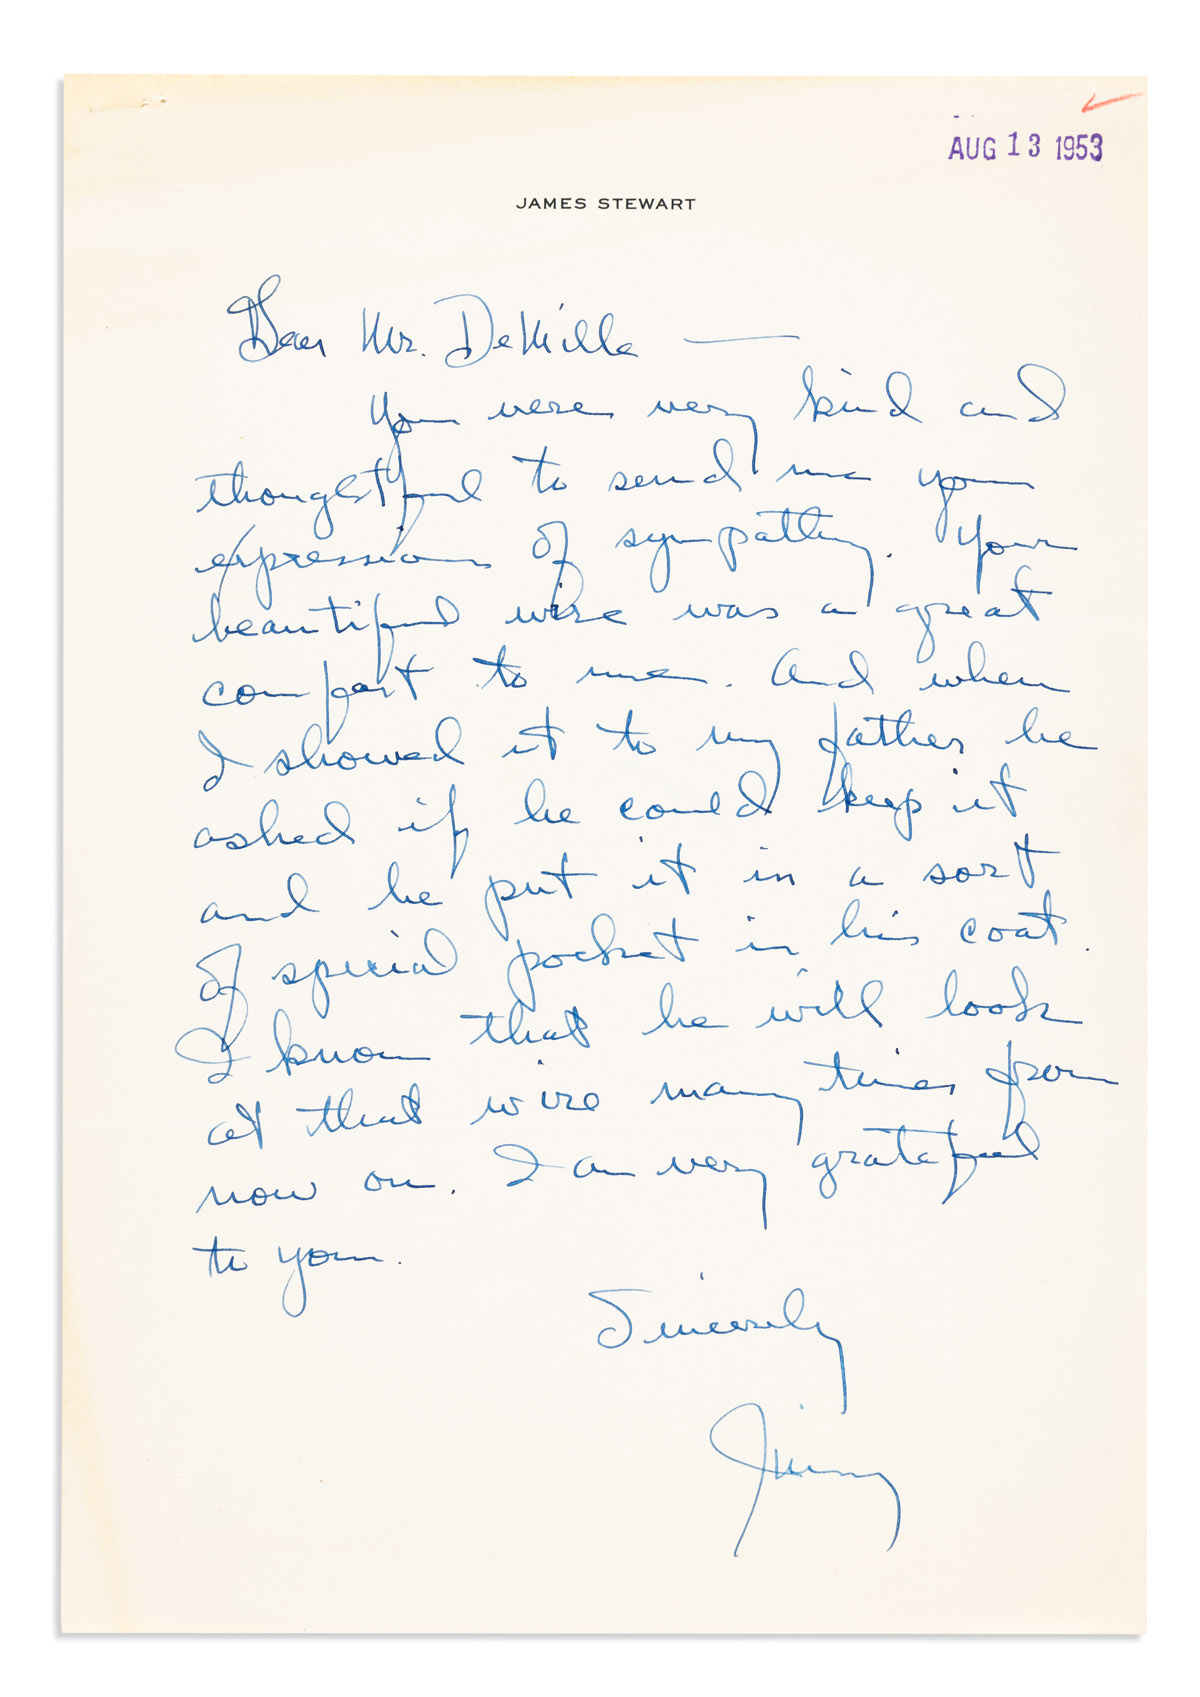 AUG 13 1953
JAMES STEWART
Dear Mr. DeMille —
You were very kind and
thoughtful to send me your
expressions of sympathy. Your
beautiful wire was a great
comfort to me. And when
I showed it to my father he
asked if he could keep it
and he put it in a sort
of special pocket in his coat.
I know that he will look
at that wire many times from
now on. I am very grateful
to you.
Sincerely
Jimmy